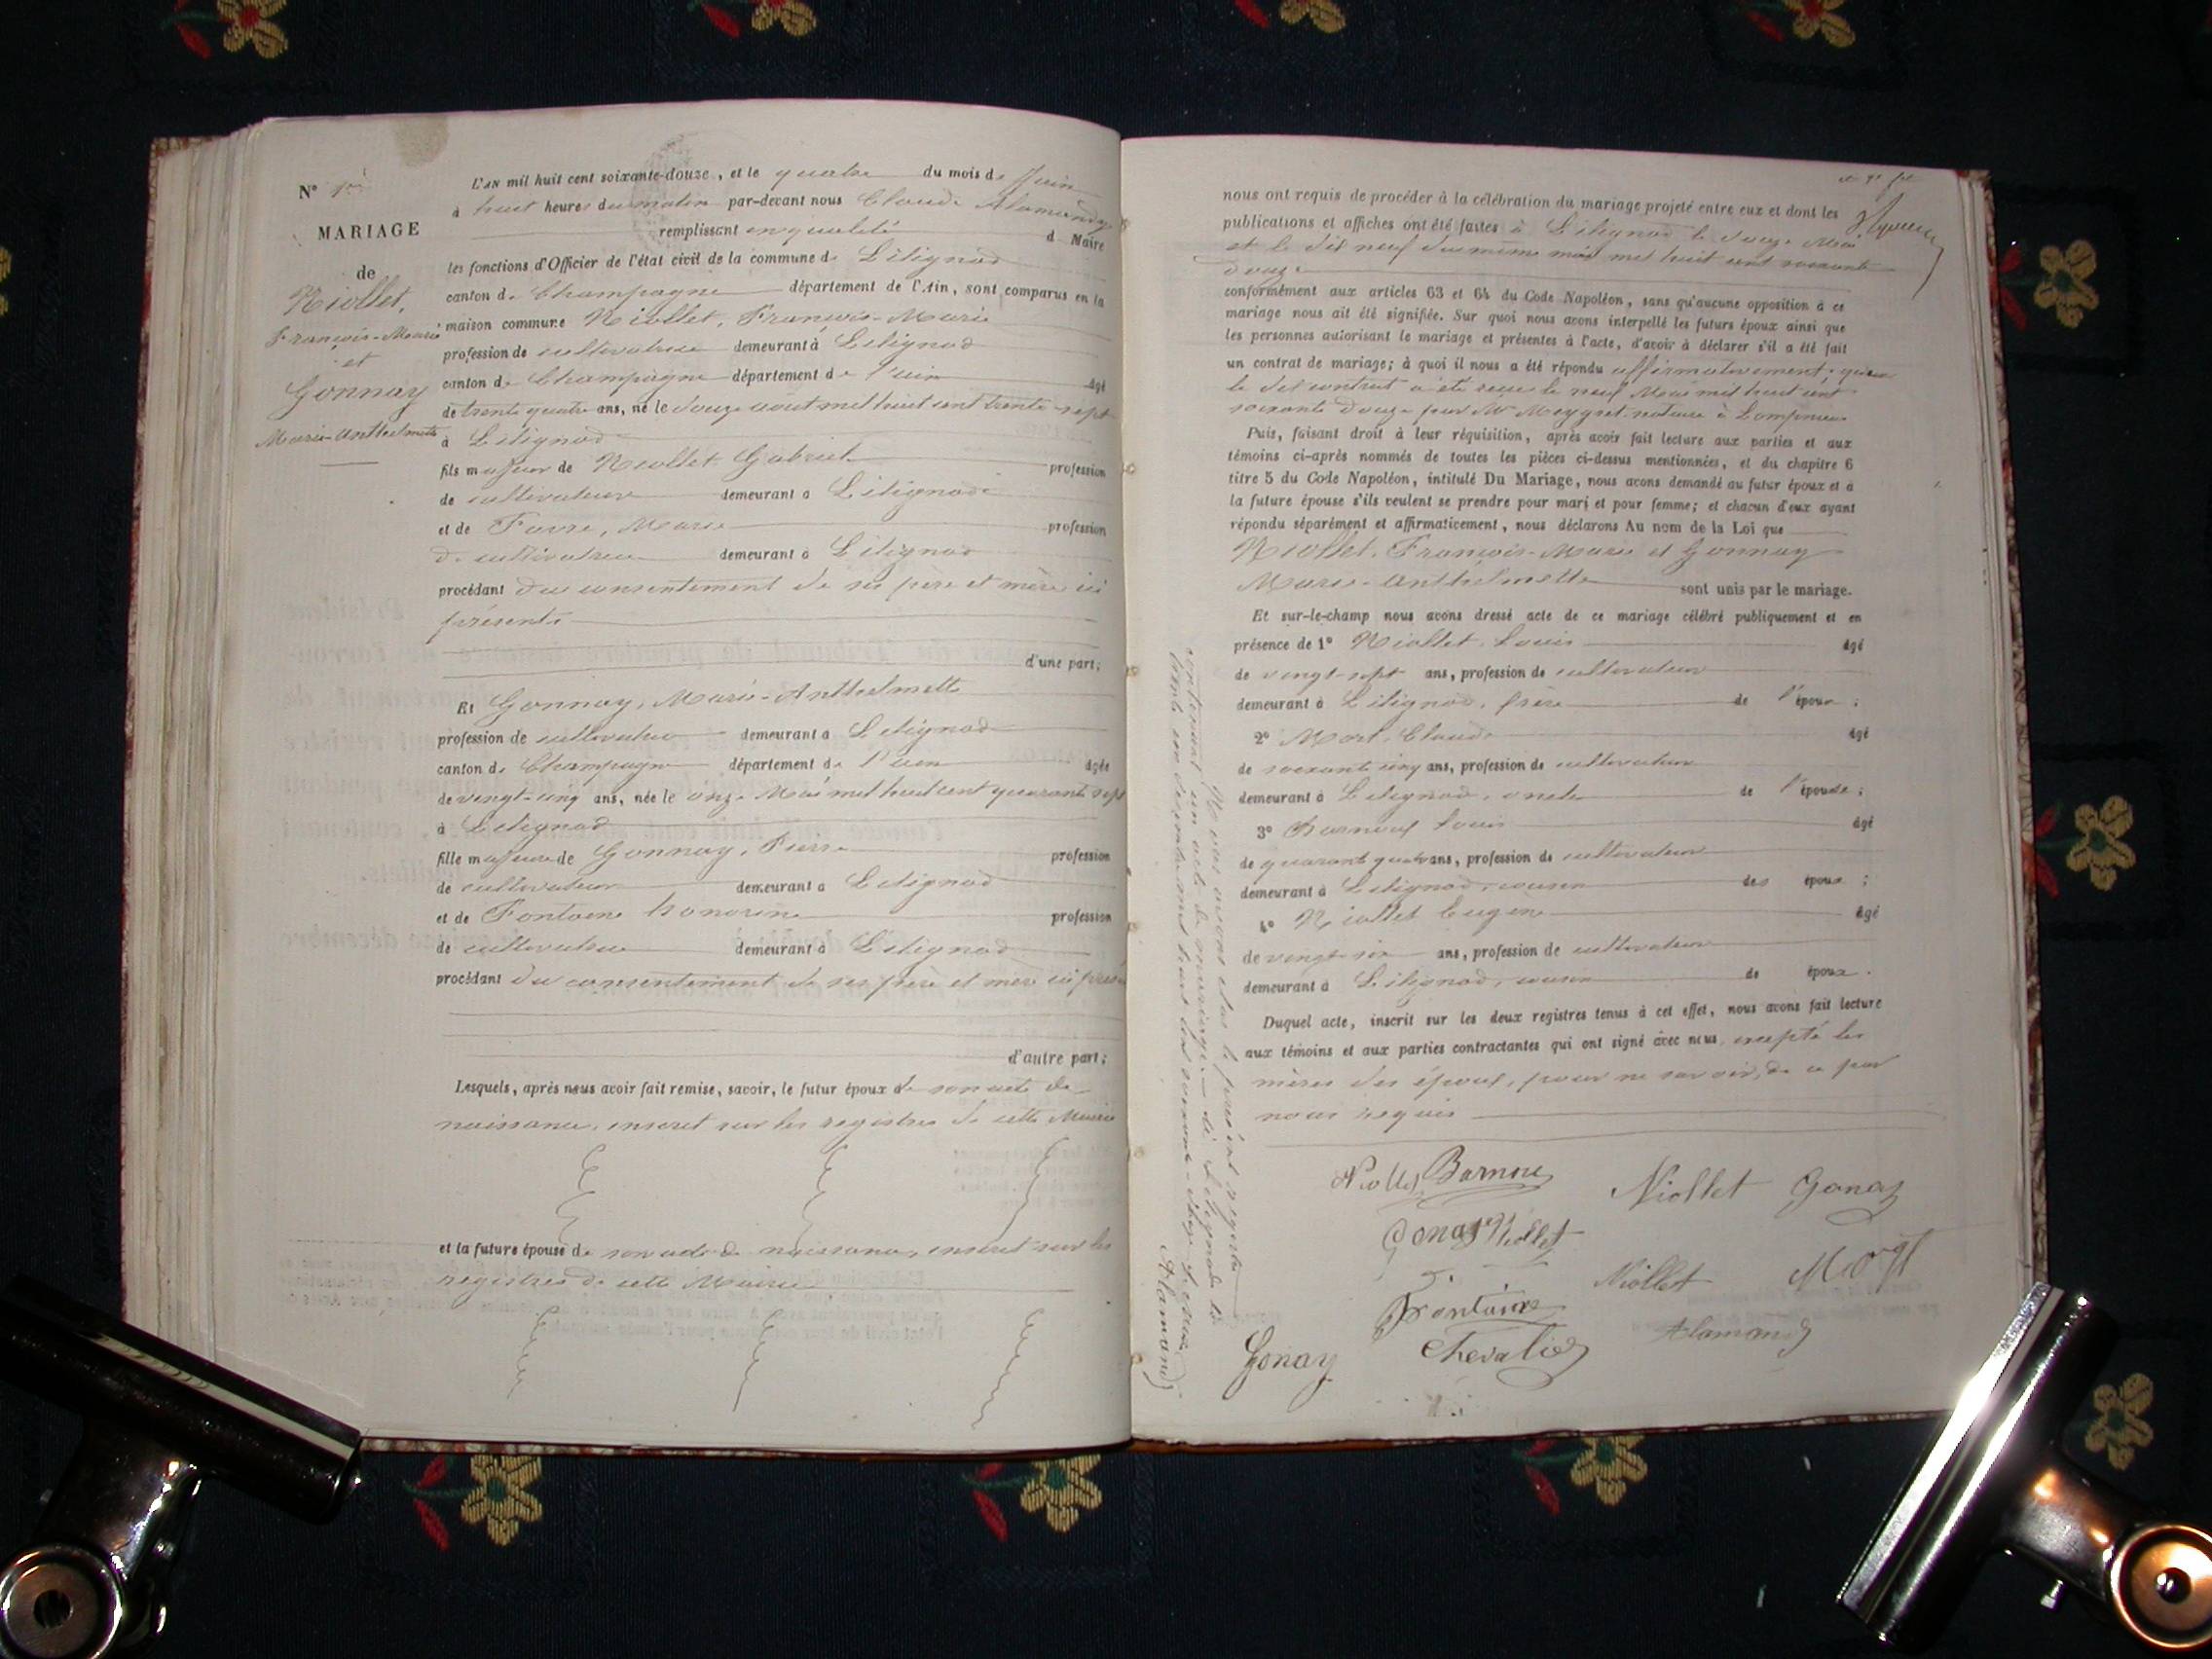 N° 1er
MARIAGE
de
Niollet,
François-Marie
et
Gonnay
Marie-Anthelmette
L'AN mil huit cent soixante-douze, et le quatre du mois de Juin
à huit heures du matin par-devant nous Claude Alamandy
remplissant en qualité de Maire
les fonctions d'Officier de l'état civil de la commune de Lilignod
canton de Champagne département de l'Ain, sont comparus en la
maison commune Niollet, François-Marie
profession de cultivateur demeurant à Lilignod
canton de Champagne département de l'ain âgé
de trente quatre ans, né le douze août mil huit cent trente-sept
à Lilignod
fils majeur de Niollet Gabriel profession
de cultivateur demeurant à Lilignod
et de Favre, Marie profession
de cultivatrice demeurant à Lilignod
procédant du consentement de ses père et mère ici
présents
d'une part;
Et Gonnay, Marie-Anthelmette
profession de cultivatrice demeurant à Lilignod
canton de Champagne département de l'ain âgée
de vingt-cinq ans, née le onze Mai mil huit cent quarante sept
à Lilignod
fille majeure de Gonnay, Pierre profession
de cultivateur demeurant à Lilignod
et de Fontaine honorine profession
de cultivatrice demeurant à Lilignod
procédant du consentement de ses père et mère ici
d'autre part;
Lesquels, après nous avoir fait remise, savoir, le futur époux de son acte de
naissance, inscrit sur les registres de cette Mairie
et la future épouse de son acte de naissance, inscrit sur les
registres de cette Mairie
nous ont requis de procéder à la célébration du mariage projeté entre eux et dont les
publications et affiches ont été faites à Lilignod le douze Mai
et le dix neuf du même mois mil huit cent soixante
douze
conformément aux articles 63 et 64 du Code Napoléon, sans qu'aucune opposition à ce
mariage nous ait été signifiée. Sur quoi nous avons interpellé les futurs époux ainsi que
les personnes autorisant le mariage et présentes à l'acte, d'avoir à déclarer s'il a été fait
un contrat de mariage; à quoi il nous a été répondu affirmativement, que
le dit contrat a été reçu le neuf Mai mil huit cent
soixante douze par Me Meygret notaire à Lompnieu
Puis, faisant droit à leur réquisition, après avoir fait lecture aux parties et aux
témoins ci-après nommés de toutes les pièces ci-dessus mentionnées, et du chapitre 6
titre 5 du Code Napoléon, intitulé Du Mariage, nous avons demandé au futur époux et à
la future épouse s'ils veulent se prendre pour mari et pour femme; et chacun d'eux ayant
répondu séparément et affirmativement, nous déclarons Au nom de la Loi que
Niollet, François-Marie et Gonnay
Marie-Anthelmette sont unis par le mariage.
Et sur-le-champ nous avons dressé acte de ce mariage célébré publiquement et en
présence de 1° Niollet, Louis âgé
de vingt-sept ans, profession de cultivateur
demeurant à Lilignod, frère de l'époux;
2° Mort, Claude âgé
de soixante cinq ans, profession de cultivateur
demeurant à Lilignod, oncle de l'épouse;
3° Barnoux Louis âgé
de quarante quatre ans, profession de cultivateur
demeurant à Lilignod, cousin des époux;
4° Niollet Eugène âgé
de vingt-six ans, profession de cultivateur
demeurant à Lilignod, cousin de époux.
Duquel acte, inscrit sur les deux registres tenus à cet effet, nous avons fait lecture
aux témoins et aux parties contractantes qui ont signé avec nous, excepté les
mères des époux, pour ne savoir, de ce par
nous requis
Niollet Barnoux Niollet Gonay
Gonay Niollet
Niollet Mort
Fontaine
Chevalier Alamandy
Gonay
Nous avons clos le présent registre
contenant un acte de mariage. – à Lilignod le
trente un décembre mil huit cent soixante-douze. Le Maire.
Alamandy